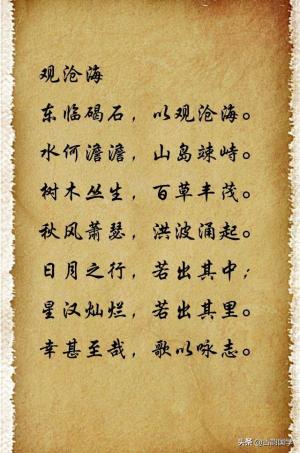 观沧海
东临碣石，以观沧海。
水何澹澹，山岛竦峙。
树木丛生，百草丰茂。
秋风萧瑟，洪波涌起。
日月之行，若出其中；
星汉灿烂，若出其里。
幸甚至哉，歌以咏志。
头条@古韵国学